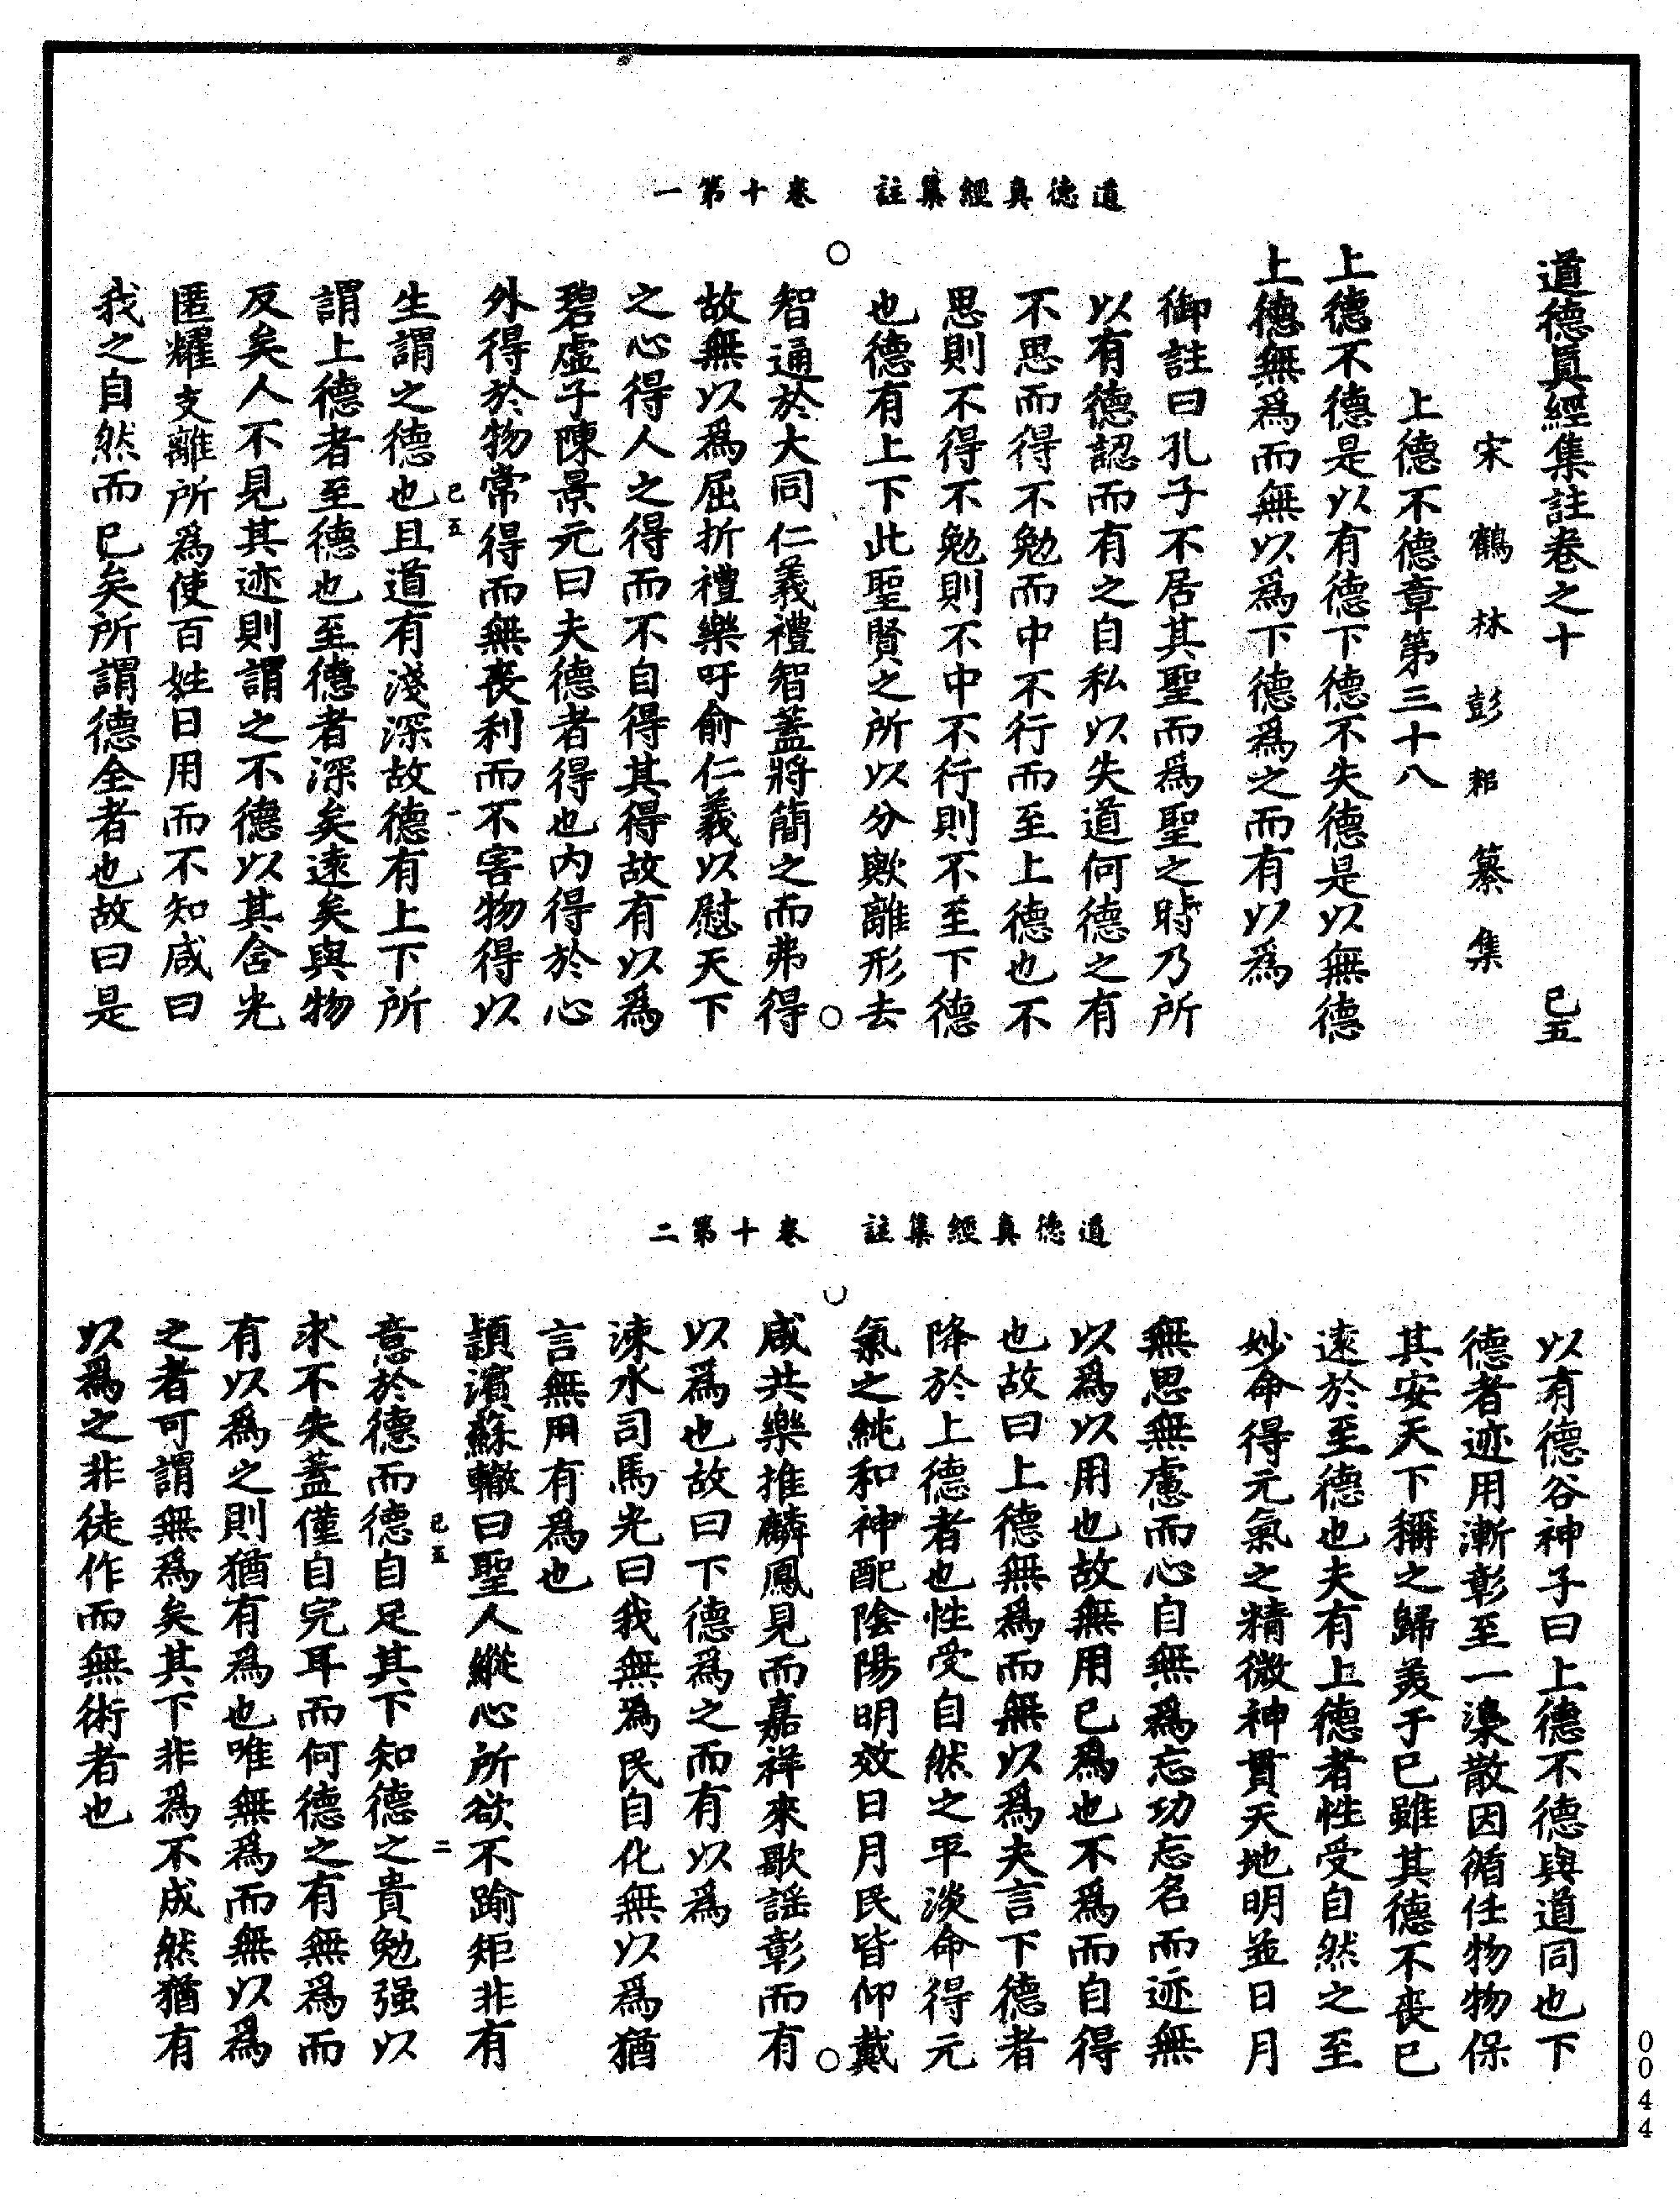 道德真經集註　卷十第一
道德眞經集註卷之十　己五
宋鶴林彭耜纂集
上德不德章第三十八
上德不德是以有德下德不失德是以無德
上德無爲而無以爲下德爲之而有以爲
御註曰孔子不居其聖而爲聖之時乃所
以有德認而有之自私以失道何德之有
不思而得不勉而中不行而至上德也不
思則不得不勉則不中不行則不至下德
也德有上下此聖賢之所以分歟離形去
智通於大同仁義禮智蓋將簡之而弗得
故無以爲屈折禮樂吁俞仁義以慰天下
之心得人之得而不自得其得故有以爲
碧虛子陳景元曰夫德者得也内得於心
外得於物常得而無喪利而不害物得以
己五　一
生謂之德也且道有淺深故德有上下所
謂上德者至德也至德者深矣遠矣與物
反矣人不見其迹則謂之不德以其含光
匿耀支離所爲使百姓日用而不知咸曰
我之自然而已矣所謂德全者也故曰是
道德真經集註　卷十第二
以有德谷神子曰上德不德與道同也下
德者迹用漸彰至一漓散因循任物物保
其安天下稱之歸羙于已雖其德不喪已
遠於至德也夫有上德者性受自然之至
妙命得元氣之精微神貫天地明並日月
無思無慮而心自無爲忘功忘名而迹無
以爲以用也故無用已爲也不爲而自得
也故曰上德無爲而無以爲夫言下德者
降於上德者也性受自然之平淡命得元
氣之純和神配陰陽明效日月民皆仰戴
咸共樂推麟鳳見而嘉祥來歌謡彰而有
以爲也故曰下德爲之而有以爲
涑水司馬光曰我無爲民自化無以爲猶
言無用有爲也
頴濱蘇轍曰聖人縱心所欲不踰矩非有
己五　二
意於德而德自足其下知德之貴勉强以
求不失蓋僅自完耳而何德之有無爲而
有以爲之則猶有爲也唯無爲而無以爲
之者可謂無爲矣其下非爲不成然猶有
以爲之非徒作而無術者也
0044